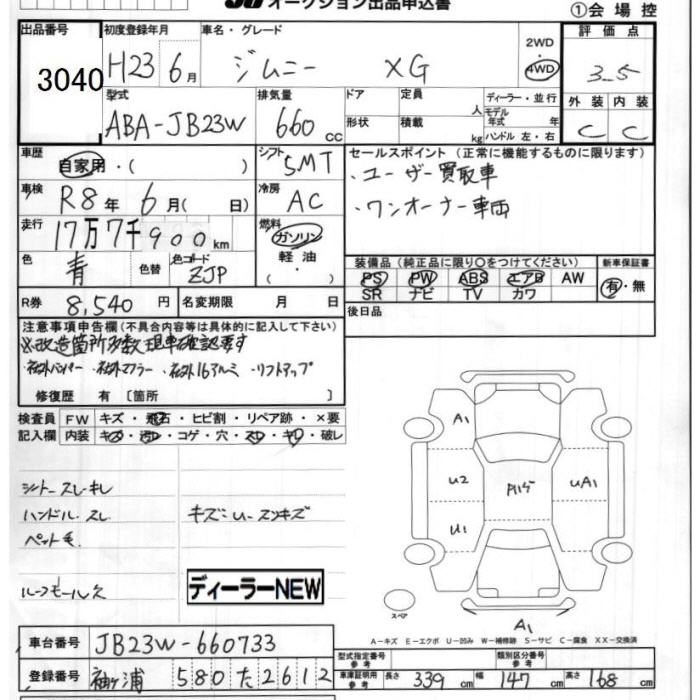 オークション出品申込書
①会場控
出品番号 3040
初度登録年月 H23 6月
車名・グレード ジムニー XG
2WD
4WD
評価点 3.5
外装 内装
C C
型式 ABA-JB23W
排気量 660 cc
ドア 定員 人
形状 積載 kg
ディーラー・並行
モデル年式 年
ハンドル 左・右
車歴 自家用・( )
シフト 5MT
車検 R8年 6月( 日)
冷房 AC
走行 17万7千900km
燃料 ガソリン
軽油
色 青 色替
色コード ZJP
R券 8,540円
名変期限 月 日
セールスポイント (正常に機能するものに限ります)
・ユーザー買取車
・ワンオーナー車両
装備品(純正品に限り○をつけてください)
新車保証書
PS PW ABS エアB AW
SR ナビ TV カワ
有・無
後日品
注意事項申告欄(不具合内容等は具体的に記入して下さい)
※改造箇所多数現車確認要す
・社外バンパー・社外マフラー・社外16アルミ・リフトアップ
修復歴 有〔箇所 〕
検査員 FW キズ・飛石・ヒビ割・リペア跡・×要
記入欄 内装 キズ・汚レ・コゲ・穴・スレ・キレ・破レ
シートスレ・キレ
ハンドルスレ
ペット毛
ルーフモール欠
キズ:U-スリキズ
ディーラーNEW
A1
U2
U1
UA1
A1
スペア
A-キズ E-エクボ U-凹み W-補修跡 S-サビ C-腐食 XX-交換済
車台番号 JB23W-660733
登録番号 袖ヶ浦 580 た 2612
型式指定番号 参考
類別区分番号 参考
車庫証明用 参考 長さ 339cm 幅 147cm 高さ 168cm